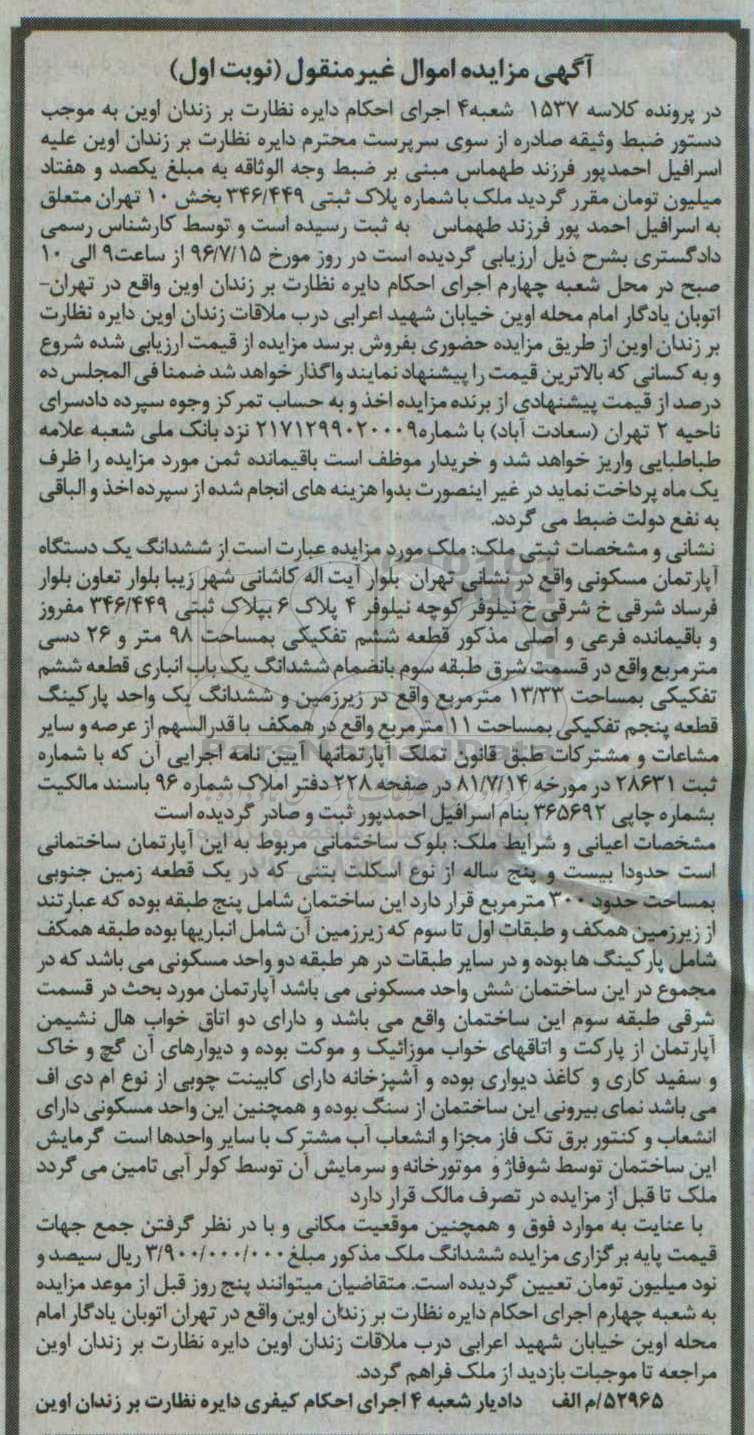 آگهی مزایده اموال غیرمنقول (نوبت اول)
در پرونده کلاسه ۱۵۳۷ شعبه۴ اجرای احکام دایره نظارت بر زندان اوین به موجب
دستور ضبط وثیقه صادره از سوی سرپرست محترم دایره نظارت بر زندان اوین علیه
اسرافیل احمدپور فرزند طهماس مبنی بر ضبط وجه الوثاقه به مبلغ یکصد و هفتاد
میلیون تومان مقرر گردید ملک با شماره پلاک ثبتی ۳۴۶/۴۴۹ بخش ۱۰ تهران متعلق
به اسرافیل احمد پور فرزند طهماس به ثبت رسیده است و توسط کارشناس رسمی
دادگستری بشرح ذیل ارزیابی گردیده است در روز مورخ ۹۶/۷/۱۵ از ساعت۹ الی ۱۰
صبح در محل شعبه چهارم اجرای احکام دایره نظارت بر زندان اوین واقع در تهران-
اتوبان یادگار امام محله اوین خیابان شهید اعرابی درب ملاقات زندان اوین دایره نظارت
بر زندان اوین از طریق مزایده حضوری بفروش برسد مزایده از قیمت ارزیابی شده شروع
و به کسانی که بالاترین قیمت را پیشنهاد نمایند واگذار خواهد شد ضمنا فی المجلس ده
درصد از قیمت پیشنهادی از برنده مزایده اخذ و به حساب تمرکز وجوه سپرده دادسرای
ناحیه ۲ تهران (سعادت آباد) با شماره۲۱۷۱۲۹۹۰۲۰۰۰۹ نزد بانک ملی شعبه علامه
طباطبایی واریز خواهد شد و خریدار موظف است باقیمانده ثمن مورد مزایده را ظرف
یک ماه پرداخت نماید در غیر اینصورت بدوا هزینه های انجام شده از سپرده اخذ و الباقی
به نفع دولت ضبط می گردد.
نشانی و مشخصات ثبتی ملک: ملک مورد مزایده عبارت است از ششدانگ یک دستگاه
آپارتمان مسکونی واقع در نشانی تهران بلوار آیت اله کاشانی شهر زیبا بلوار تعاون بلوار
فرساد شرقی خ شرقی خ نیلوفر کوچه نیلوفر ۴ پلاک ۶ بپلاک ثبتی ۳۴۶/۴۴۹ مفروز
و باقیمانده فرعی و اصلی مذکور قطعه ششم تفکیکی بمساحت ۹۸ متر و ۲۶ دسی
مترمربع واقع در قسمت شرق طبقه سوم بانضمام ششدانگ یک باب انباری قطعه ششم
تفکیکی بمساحت ۱۳/۳۳ مترمربع واقع در زیرزمین و ششدانگ یک واحد پارکینگ
قطعه پنجم تفکیکی بمساحت ۱۱ مترمربع واقع در همکف با قدرالسهم از عرصه و سایر
مشاعات و مشترکات طبق قانون تملک آپارتمانها آیین نامه اجرایی آن که با شماره
ثبت ۲۸۶۳۱ در مورخه ۸۱/۷/۱۴ در صفحه ۲۲۸ دفتر املاک شماره ۹۶ باسند مالکیت
بشماره چاپی ۳۶۵۶۹۲ بنام اسرافیل احمدپور ثبت و صادر گردیده است
مشخصات اعیانی و شرایط ملک: بلوک ساختمانی مربوط به این آپارتمان ساختمانی
است حدودا بیست و پنج ساله از نوع اسکلت بتنی که در یک قطعه زمین جنوبی
بمساحت حدود ۳۰۰ مترمربع قرار دارد این ساختمان شامل پنج طبقه بوده که عبارتند
از زیرزمین همکف و طبقات اول تا سوم که زیرزمین آن شامل انباریها بوده طبقه همکف
شامل پارکینگ ها بوده و در سایر طبقات در هر طبقه دو واحد مسکونی می باشد که در
مجموع در این ساختمان شش واحد مسکونی می باشد آپارتمان مورد بحث در قسمت
شرقی طبقه سوم این ساختمان واقع می باشد و دارای دو اتاق خواب هال نشیمن
آپارتمان از پارکت و اتاقهای خواب موزائیک و موکت بوده و دیوارهای آن گچ و خاک
و سفید کاری و کاغذ دیواری بوده و آشپزخانه دارای کابینت چوبی از نوع ام دی اف
می باشد نمای بیرونی این ساختمان از سنگ بوده و همچنین این واحد مسکونی دارای
انشعاب و کنتور برق تک فاز مجزا و انشعاب آب مشترک با سایر واحدها است گرمایش
این ساختمان توسط شوفاژ و موتورخانه و سرمایش آن توسط کولر آبی تامین می گردد
ملک تا قبل از مزایده در تصرف مالک قرار دارد
با عنایت به موارد فوق و همچنین موقعیت مکانی و با در نظر گرفتن جمع جهات
قیمت پایه برگزاری مزایده ششدانگ ملک مذکور مبلغ ۳/۹۰۰/۰۰۰/۰۰۰ ریال سیصد و
نود میلیون تومان تعیین گردیده است. متقاضیان میتوانند پنج روز قبل از موعد مزایده
به شعبه چهارم اجرای احکام دایره نظارت بر زندان اوین واقع در تهران اتوبان یادگار امام
محله اوین خیابان شهید اعرابی درب ملاقات زندان اوین دایره نظارت بر زندان اوین
مراجعه تا موجبات بازدید از ملک فراهم گردد.
۵۲۹۶۵/م الف دادیار شعبه ۴ اجرای احکام کیفری دایره نظارت بر زندان اوین